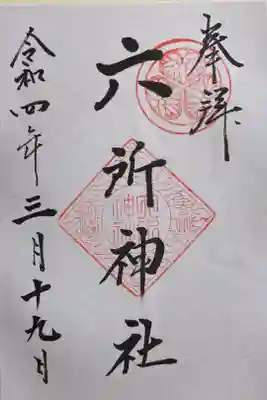 奉拝
六所神社
令和四年三月十九日